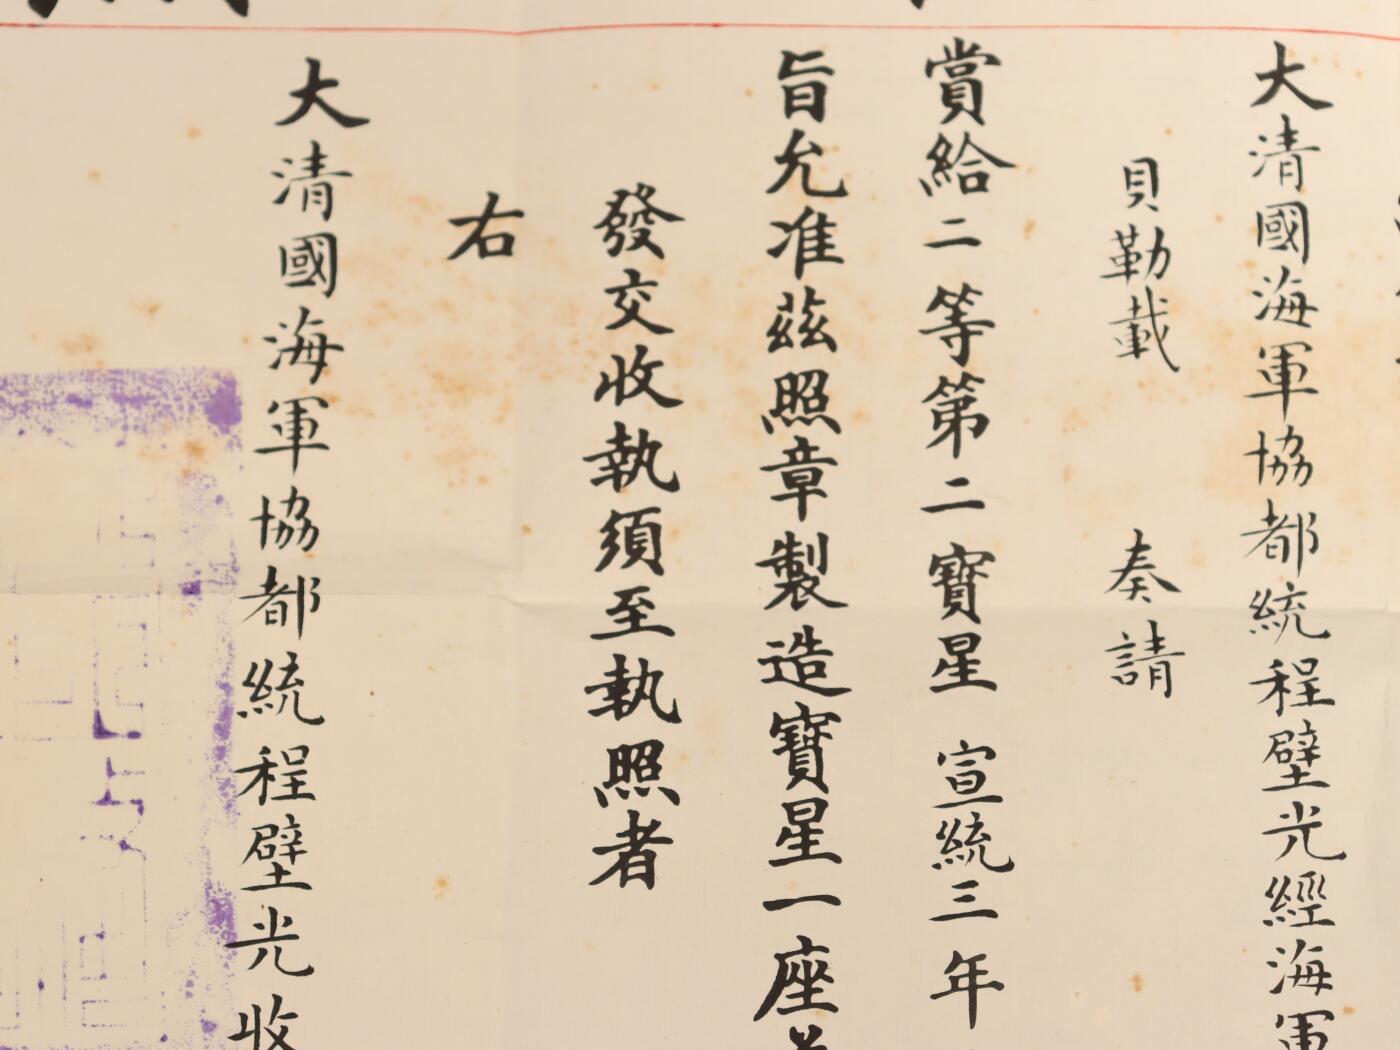 大清國海軍協都統程壁光經海軍
貝勒載 奏請
賞給二等第二寶星 宣統三年
旨允准茲照章製造寶星一座
發交收執須至執照者
右
大清國海軍協都統程壁光收